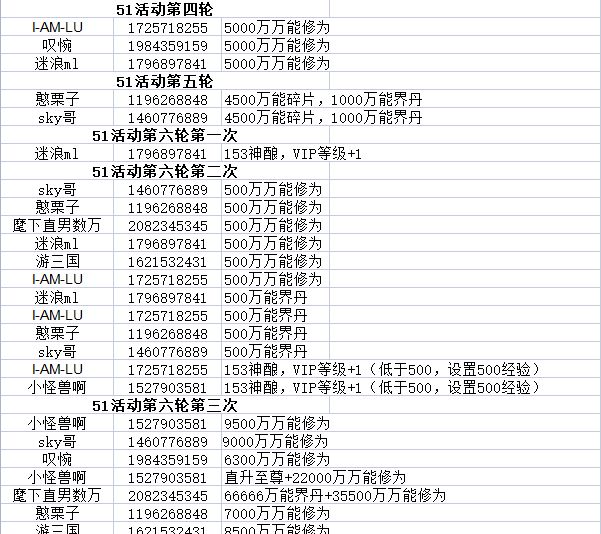 51活动第四轮
I-AM-LU 1725718255 5000万万能修为
叹惋 1984359159 5000万万能修为
迷浪ml 1796897841 5000万万能修为
51活动第五轮
憨栗子 1196268848 4500万能碎片，1000万能界丹
sky哥 1460776889 4500万能碎片，1000万能界丹
51活动第六轮第一次
迷浪ml 1796897841 153神酿，VIP等级+1
51活动第六轮第二次
sky哥 1460776889 500万万能修为
憨栗子 1196268848 500万万能修为
麾下直男数万 2082345345 500万万能修为
迷浪ml 1796897841 500万万能修为
游三国 1621532431 500万万能修为
I-AM-LU 1725718255 500万万能修为
迷浪ml 1796897841 500万能界丹
I-AM-LU 1725718255 500万能界丹
憨栗子 1196268848 500万能界丹
sky哥 1460776889 500万能界丹
I-AM-LU 1725718255 153神酿，VIP等级+1（低于500，设置500经验）
小怪兽啊 1527903581 153神酿，VIP等级+1（低于500，设置500经验）
51活动第六轮第三次
小怪兽啊 1527903581 9500万万能修为
sky哥 1460776889 9000万万能修为
叹惋 1984359159 6300万万能修为
小怪兽啊 1527903581 直升至尊+22000万万能修为
麾下直男数万 2082345345 66666万能界丹+35500万万能修为
憨栗子 1196268848 7000万万能修为
游三国 1621532431 8500万万能修为